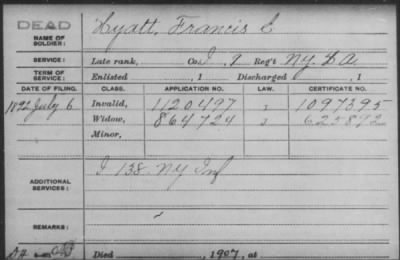 DEAD
NAME OF SOLDIER:
Hyatt, Francis E
SERVICE:
Late rank, Co. I, 9 Reg't N.Y. H A.
TERM OF SERVICE:
Enlisted , 1 Discharged , 1
DATE OF FILING. CLASS. APPLICATION NO. LAW. CERTIFICATE NO.
1892 July 6 Invalid, 1120497 1097395
Widow, 864724 625892
Minor,
ADDITIONAL SERVICES:
I 138 NY Inf
REMARKS:
Died , 1907, at